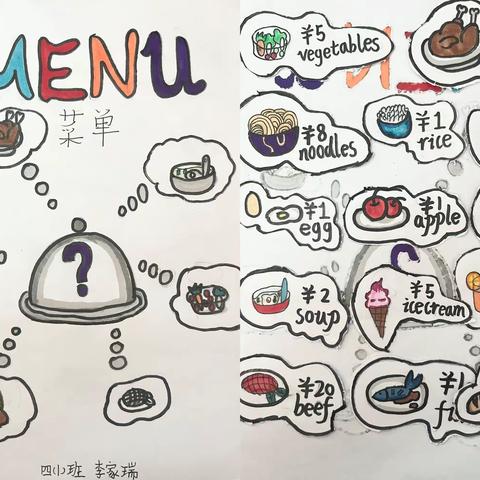 MENU
菜单
?
四小班 李家瑞
¥5
vegetables
¥8
noodles
¥1
rice
¥1
egg
¥1
apple
¥2
soup
¥5
icecream
¥20
beef